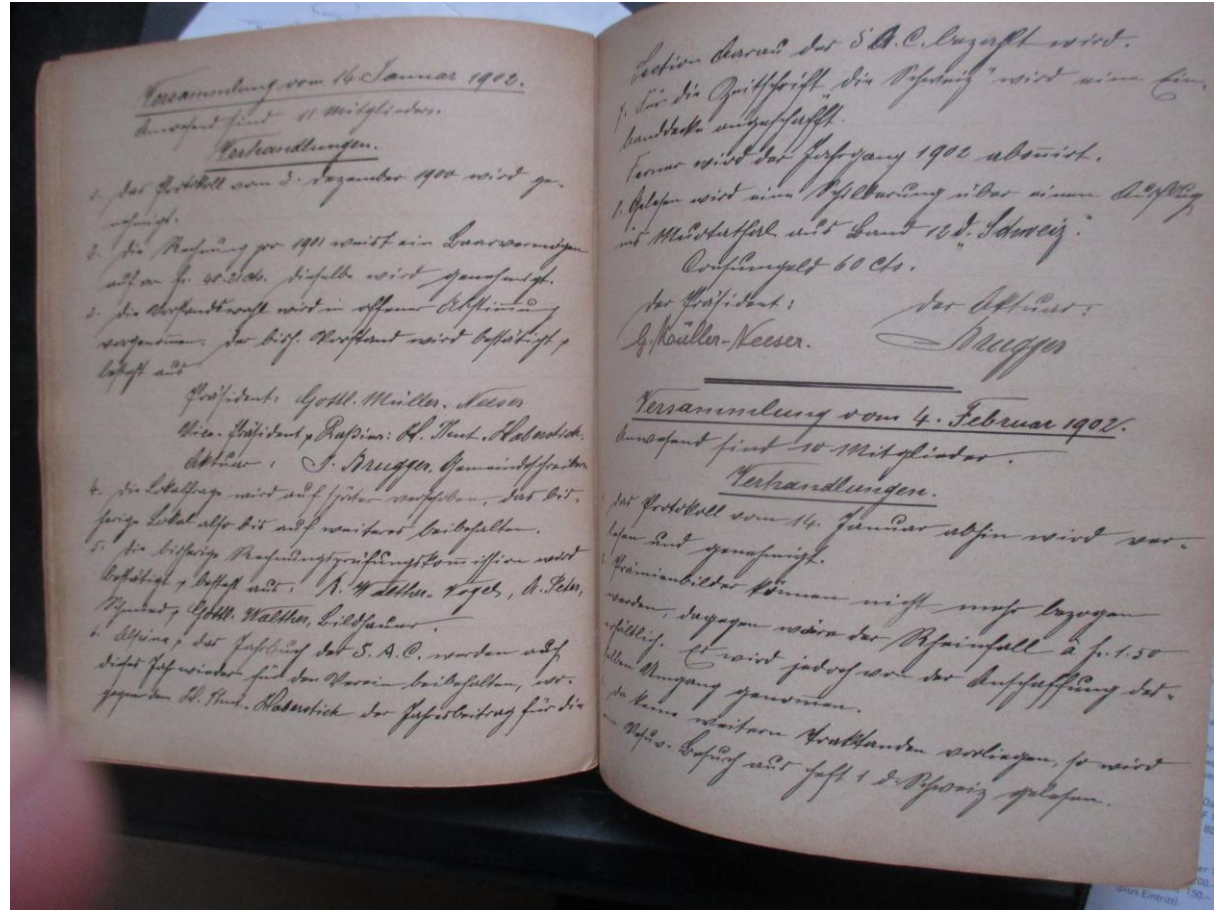 Versammlung vom 14. Januar 1902.
Anwesend sind 11 Mitglieder.
Verhandlungen.
1. Das Protokoll vom 3. Dezember 1900 wird ge-
nehmigt.
2. Die Rechnung pr 1901 weist ein Baarvermögen
auf von fr. 45.21 cts. Dieselbe wird genehmigt.
3. Die Vorstandswahl wird in offener Abstimmung
vorgenommen. Der bish. Vorstand wird bestätigt &
besteht aus
Präsident: Gottl. Müller-Neeser
Vice-Präsident & Kassier: H. Hunt-Haberstich.
Aktuar: J. Brugger, Gemeindeschreiber
4. Die Lokalfrage wird auf später verschoben, das bis-
herige Lokal also bis auf weiteres beibehalten.
5. Die bisherige Rechnungsprüfungskommission wird
bestätigt & besteht aus: R. Walther-Vogel, A. Peter,
Schmied & Gottl. Walther, Bildhauer.
6. Alpina & das Jahrbuch des S. A. C. werden auch
dieses Jahr wieder für den Verein beibehalten, wo-
gegen dem H. Hunt-Haberstich der Jahresbeitrag für die
Section Aarau des S. A. C. bezahlt wird.
7. Für die Zeitschrift "die Schweiz" wird eine Ein-
banddecke angeschafft.
Ferner wird der Jahrgang 1902 abonnirt.
8. Gelesen wird eine Schilderung über einen Ausflug
ins Muotathal aus Band 12 d. "Schweiz".
Consumgeld 60 Cts.
Der Präsident: Der Aktuar:
G. Müller-Neeser. Brugger
Versammlung vom 4. Februar 1902.
Anwesend sind 10 Mitglieder.
Verhandlungen.
Das Protokoll vom 14. Januar abhin wird ver-
lesen und genehmigt.
Prämienbilder können nicht mehr bezogen
werden, dagegen wäre der Rheinfall à fr. 1.50
erhältlich. Es wird jedoch von der Anschaffung des-
selben Umgang genommen.
Da keine weitern Traktanden vorliegen, so wird
ein Vesuv-Besuch aus Heft 1 d. Schweiz gelesen.